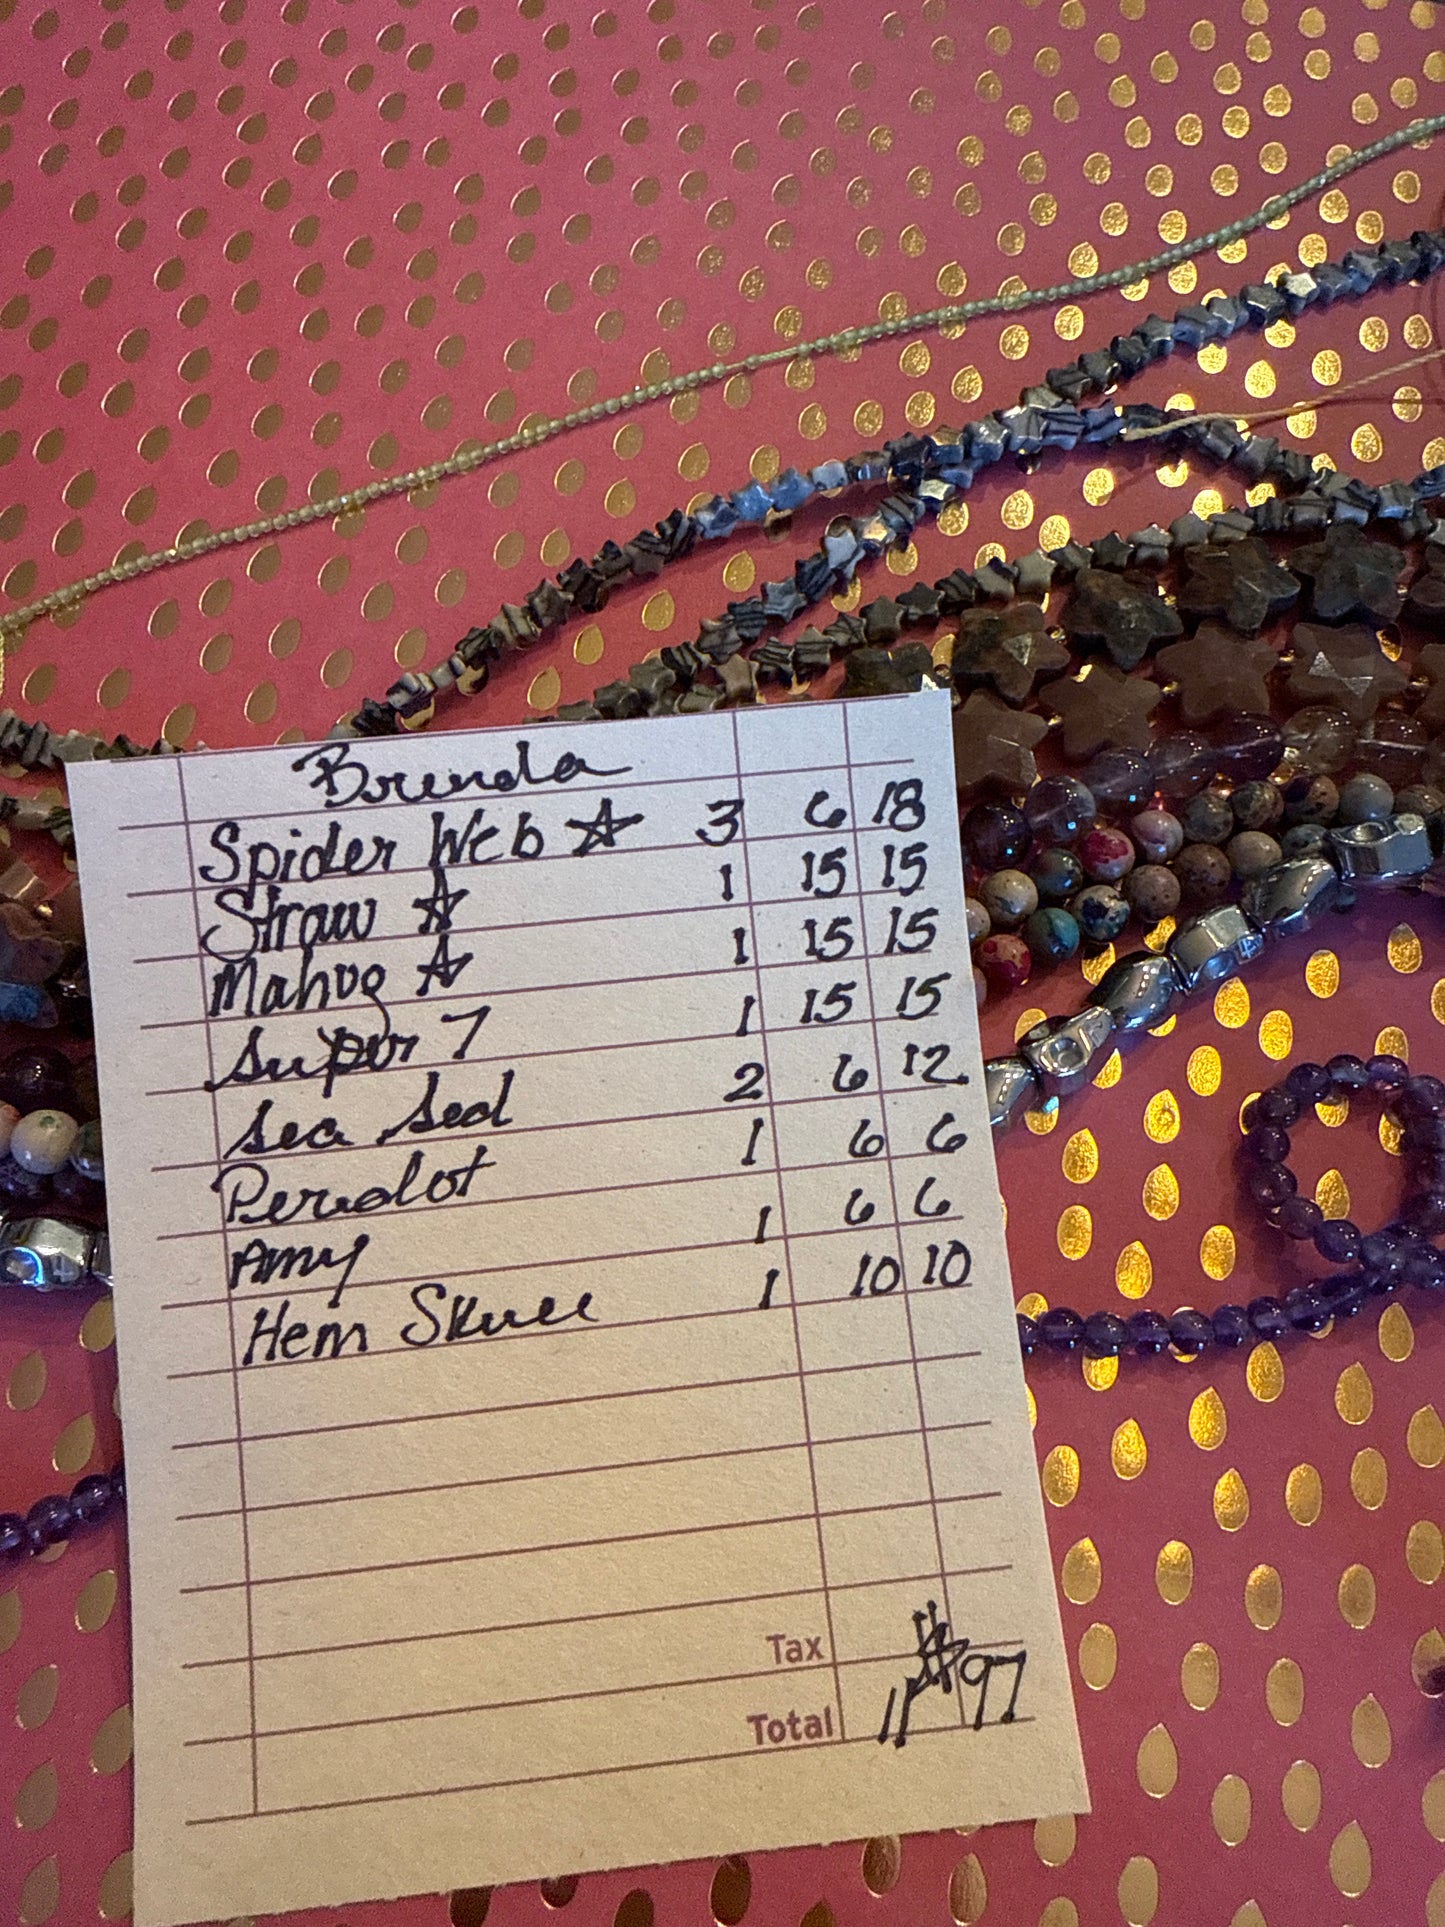 Brenda
Spider Web ☆ 3 6 18
Straw ☆ 1 15 15
Mahog ☆ 1 15 15
Super 7 1 15 15
Sea Sed 2 6 12
Peridot 1 6 6
Amy 1 6 6
Hem Skull 1 10 10
Tax
Total 11 $97